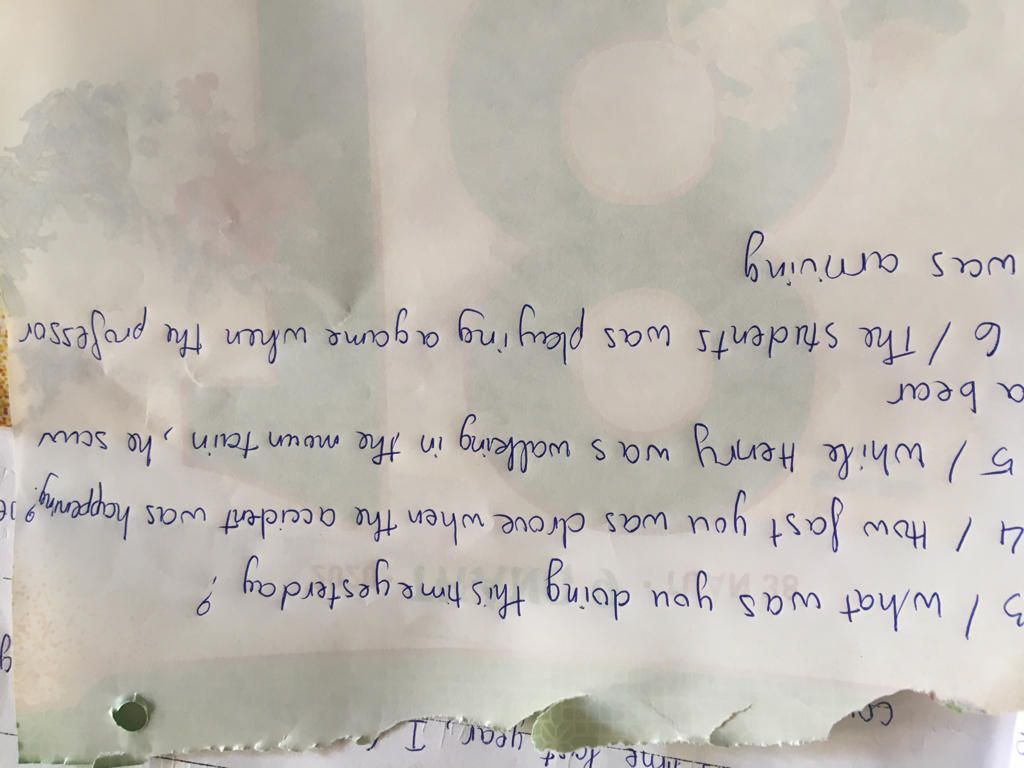 time last year, I
3 / What was you doing this time yesterday ?
4 / How fast you was drove when the accident was happening?
5 / While Henry was walking in the mountain, he saw
a bear
6 / The students was playing a game when the professor
was arriving
18
TUAN 38